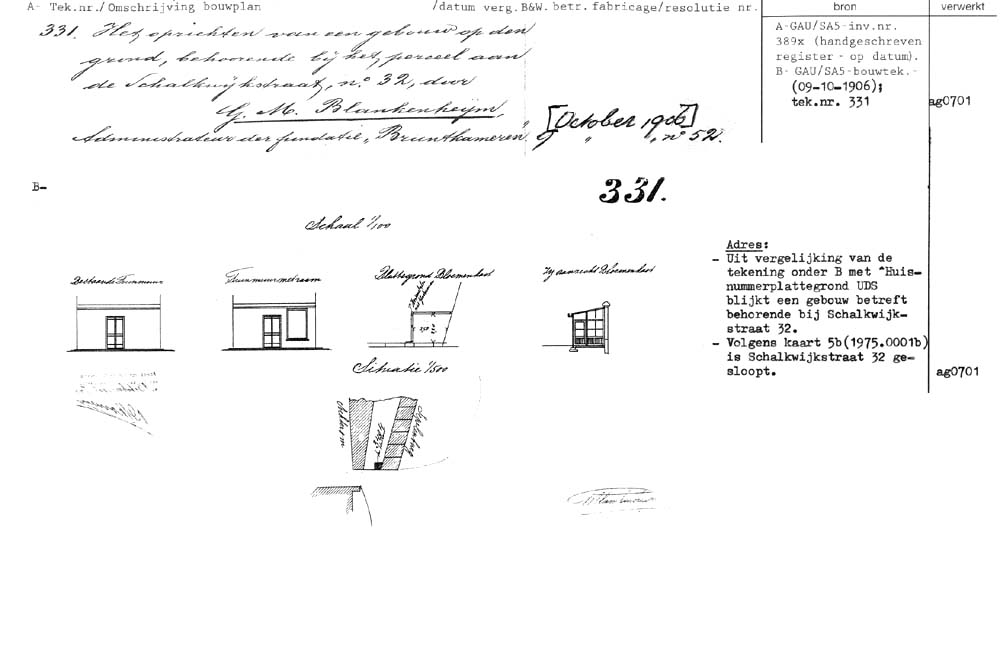 A- Tek.nr./Omschrijving bouwplan /datum verg.B&W. betr. fabricage/resolutie nr. bron verwerkt
331. Het oprichten van een gebouw op den
grond, behoorende bij het perceel aan
de Schalkwijkstraat, no. 32, door
G. M. Blankenheijm,
Administrateur der fundatie „Bruntkameren"
[October 1906]
9 " " no 52.
A-GAU/SA5-inv.nr.
389x (handgeschreven
register - op datum).
B- GAU/SA5-bouwtek.-
(09-10-1906);
tek.nr. 331
ag0701
B-
331.
Schaal 1/100
Bestaande Tuinmuur
Tuinmuur met raam
Plattegrond Bloemenkast
Zij aanzicht Bloemenkast
Situatie 1/500
Adres:
- Uit vergelijking van de
tekening onder B met "Huis-
nummerplattegrond UDS
blijkt een gebouw betreft
behorende bij Schalkwijk-
straat 32.
- Volgens kaart 5b(1975.0001b)
is Schalkwijkstraat 32 ge-
sloopt.
ag0701